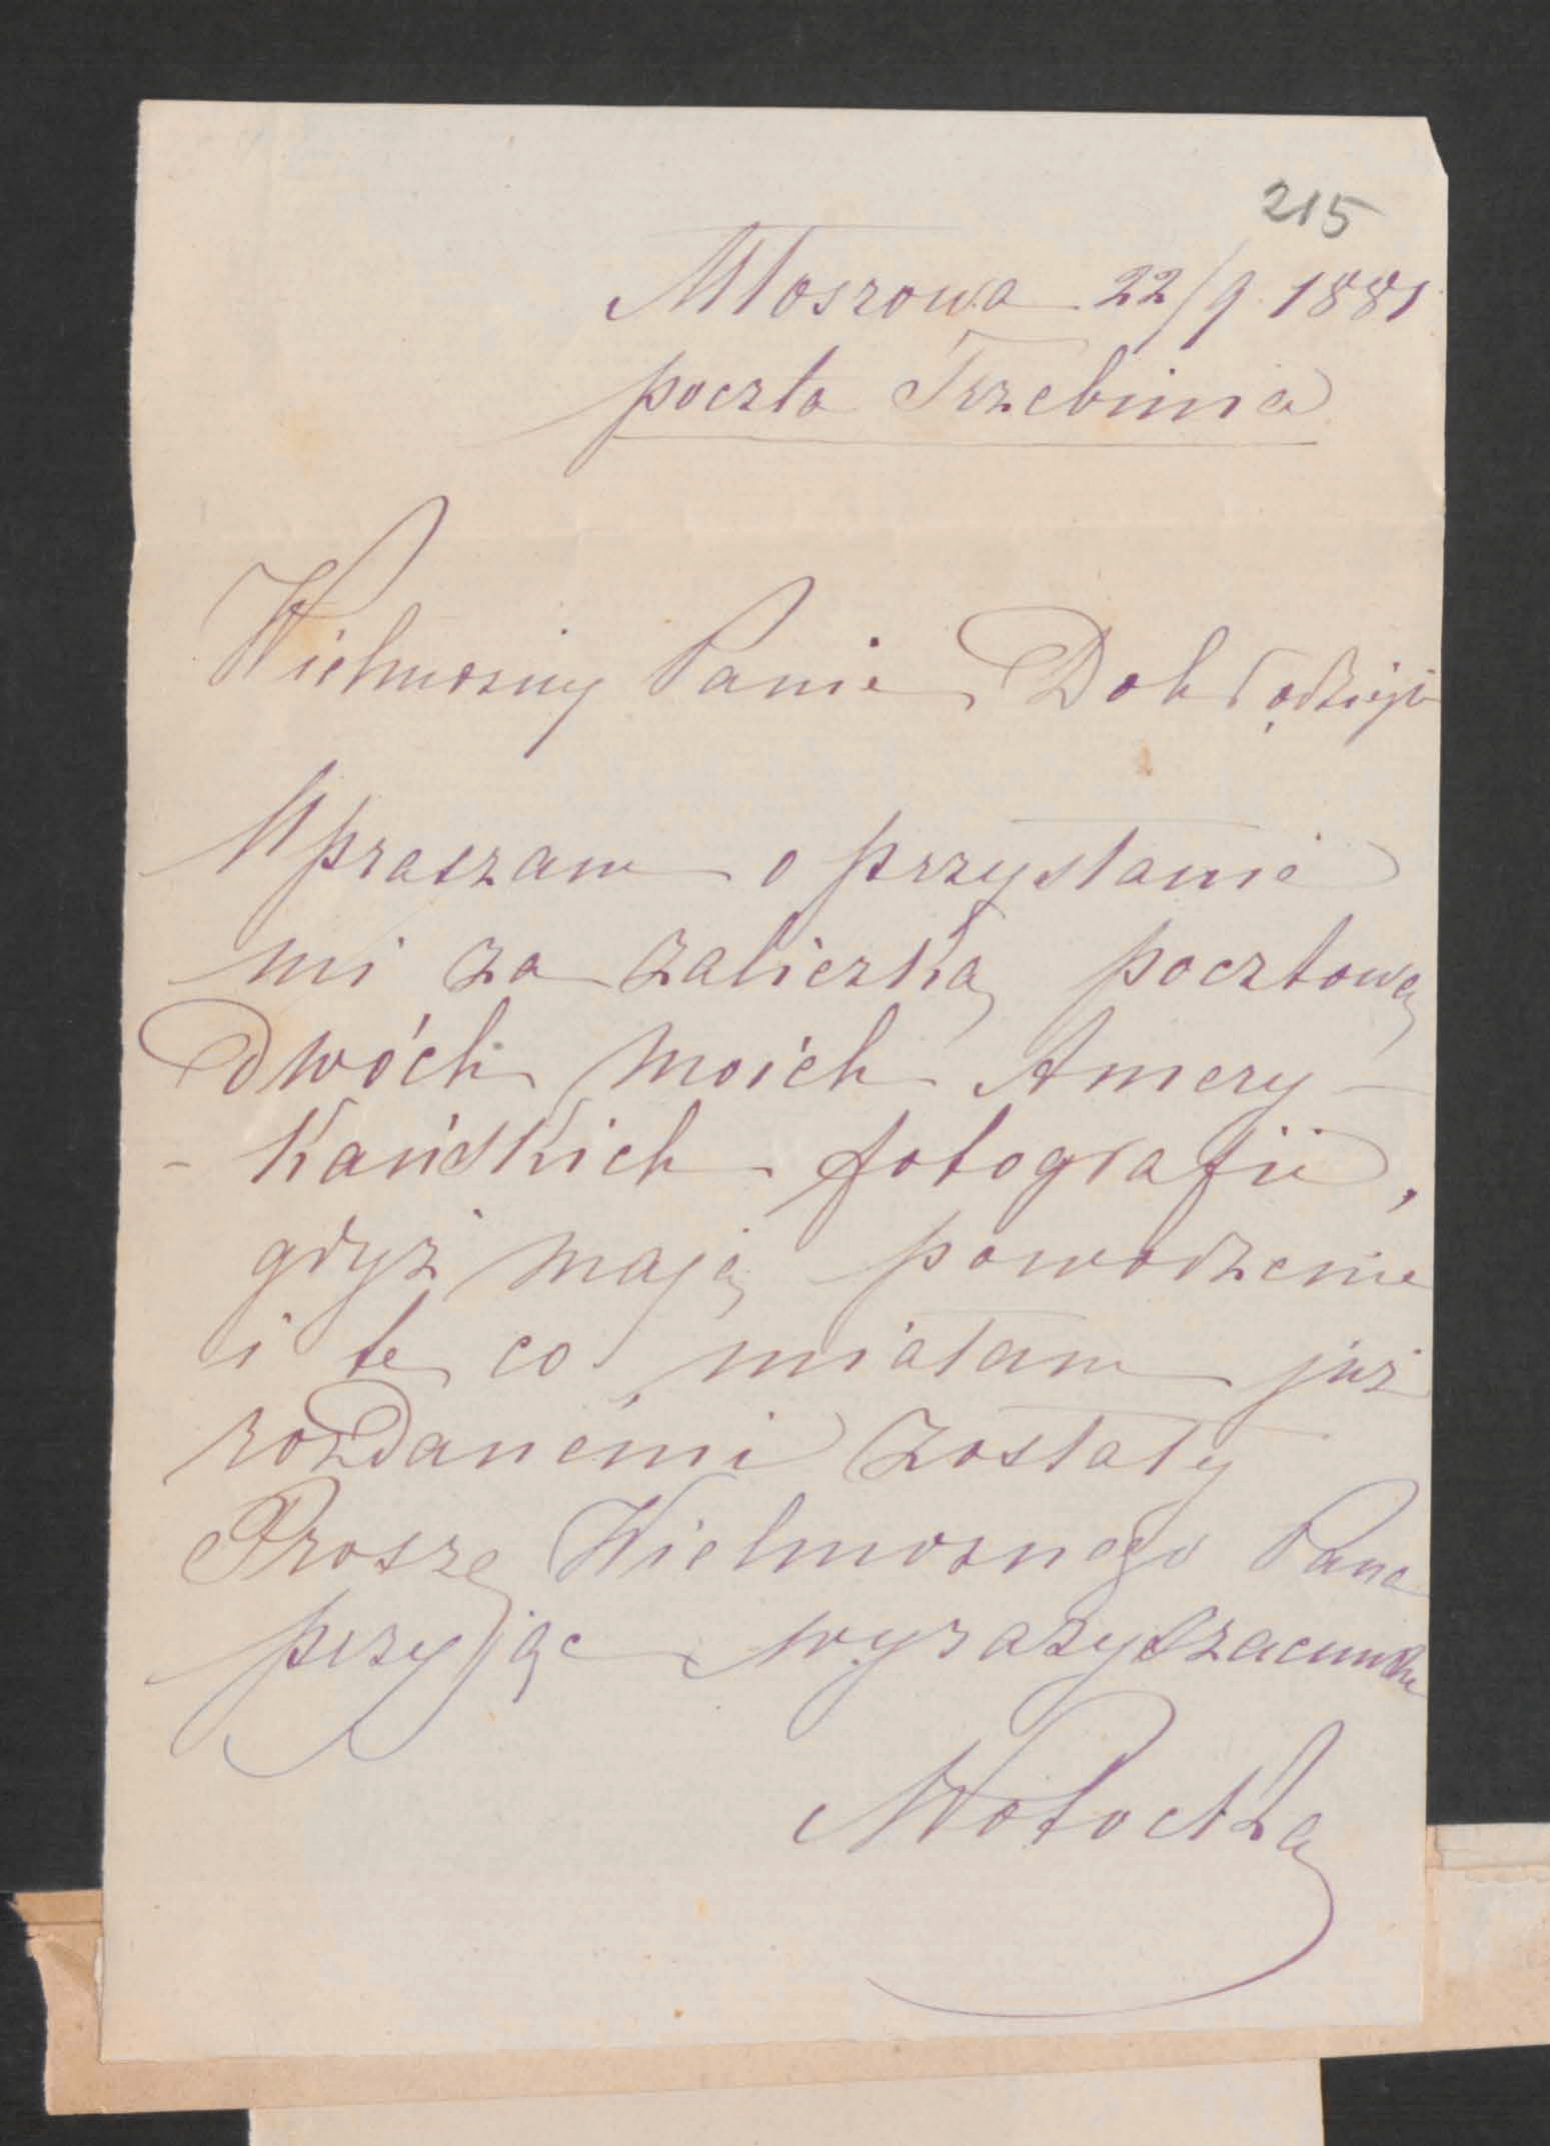 215
Młoszowa 22/9 1881
poczta Trzebinia
Wielmożny Panie Dobrodzieju
Upraszam o przysłanie
mi za zaliczką pocztową
Dwóch moich Amery-
-kańskich fotografii,
gdyż mają powodzenie
i te co miałam już
rozdanémi zostały
Proszę Wielmożnego Pana
przyjąć wyrazy szacunku
MPotocka